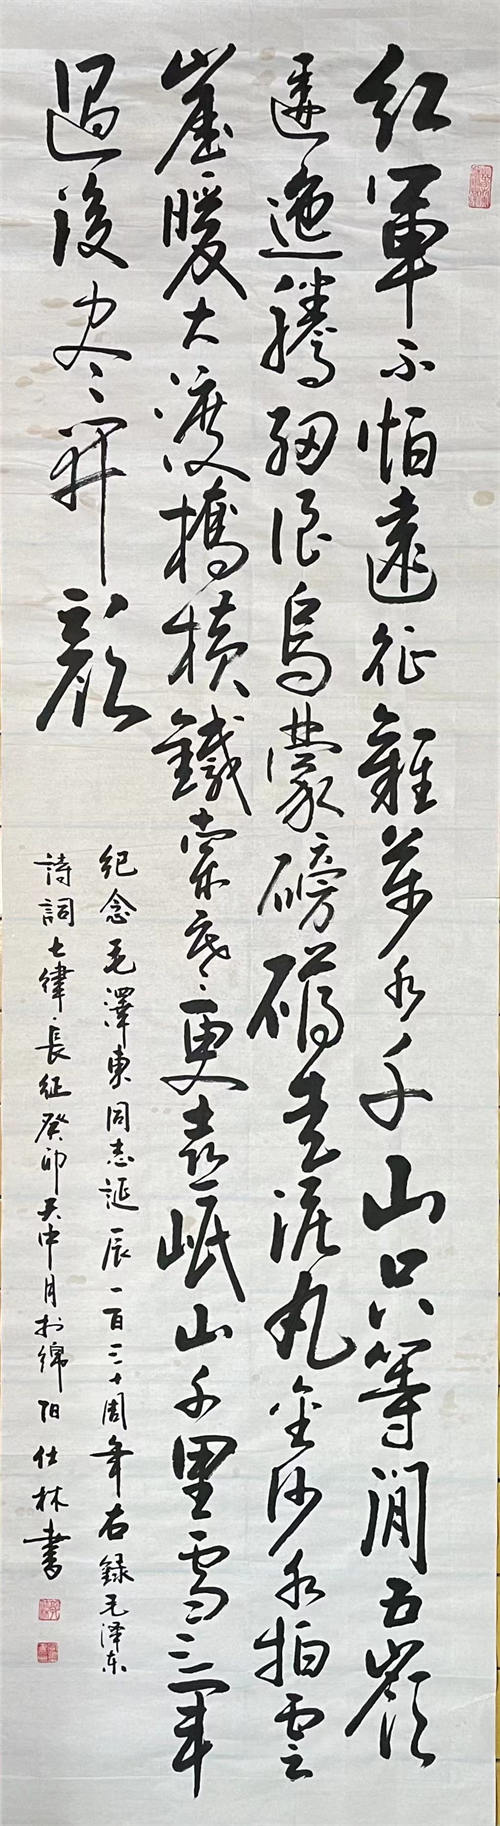 紅軍不怕遠征難萬水千山只等閒五嶺
逶迤騰細浪烏蒙磅礴走泥丸金沙水拍雲
崖暖大渡橋橫鐵索寒更喜岷山千里雪三軍
過後盡開顏
紀念毛澤東同志誕辰一百三十周年右錄毛泽东
詩詞七律長征癸卯天中月於綿陽仕林書